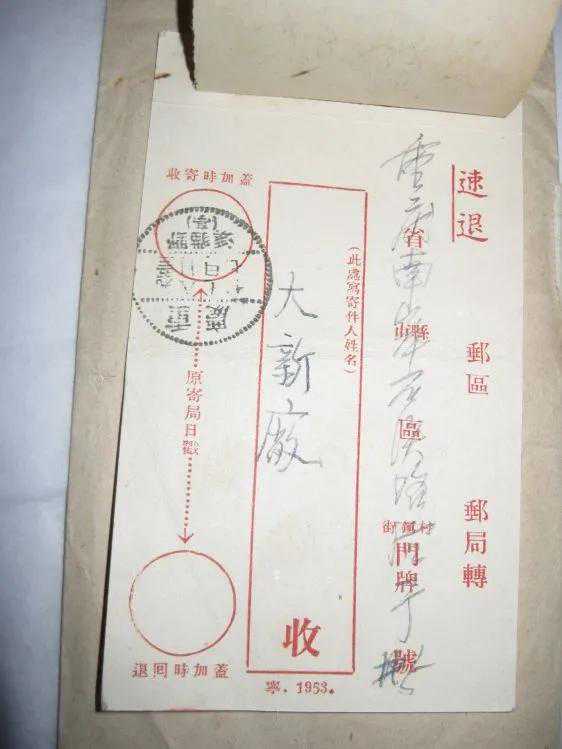 速退　郵區　郵局轉
重慶南岸
省
市縣
區
街鎮村
門牌
號
(此處寫寄件人姓名)
大新廠
收
收寄時加蓋
重慶
野貓溪
原寄局日戳
退回時加蓋
寧. 1953.